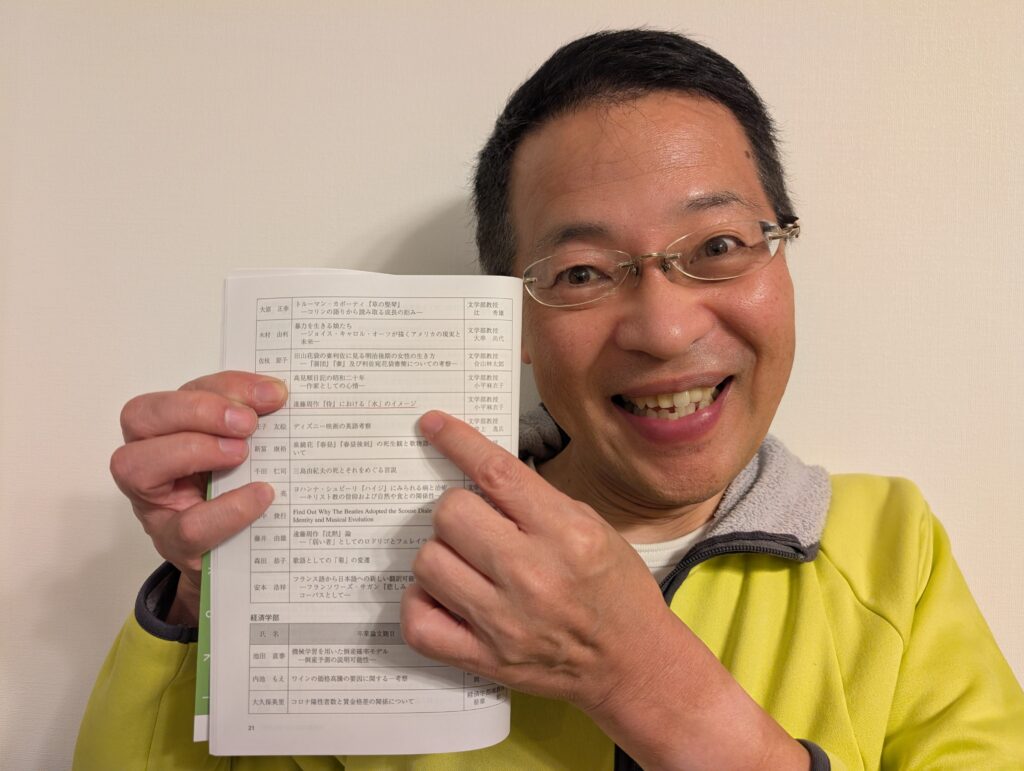 大原 正幸 トルーマン・カポーティ『草の竪琴』 文学部教授
―コリンの語りから読み取る成長の拒み― 辻 秀雄
木村 由利 暴力を生きる娘たち 文学部教授
―ジョイス・キャロル・オーツが描くアメリカの現実と 大串 尚代
未来―
佐枝 節子 田山花袋の蒲団に見る明治後期の女性の生き方 文学部教授
―『蒲団』『妻』及び 合山林太郎
高見順日記の昭和二十年 文学部教授
―作家としての心情― 小平麻衣子
遠藤周作『侍』における「水」のイメージ 文学部教授
小平麻衣子
友絵 ディズニー映画の英語考察 文学部教授
新冨 康裕 泉鏡花『春昼』『春昼後刻』の死生観と歌物語
いて
千田 仁司 三島由紀夫の死とそれをめぐる言説
英 ヨハンナ・シュピーリ『ハイジ』にみられる病と治癒
―キリスト教の信仰および自然や食との関係性―
俊行 Find Out Why The Beatles Adopted the Scouse
Identity and Musical Evolution
藤井 由雄 遠藤周作『沈黙』論
―「弱い者」としてのロドリゴとフェレイラ
森田 恭子 歌語としての「菊」の変遷
安本 浩祥 フランス語から日本語への新しい翻訳可能
―フランソワーズ・サガン『悲しみ
コーパスとして―
経済学部
氏 名 卒業論文題目
池田 直泰 機械学習を用いた倒産確率モデル
―倒産予測の説明可能性―
内池 もえ ワインの価格高騰の要因に関する一考察
大久保美里 コロナ陽性者数と賃金格差の関係について
21